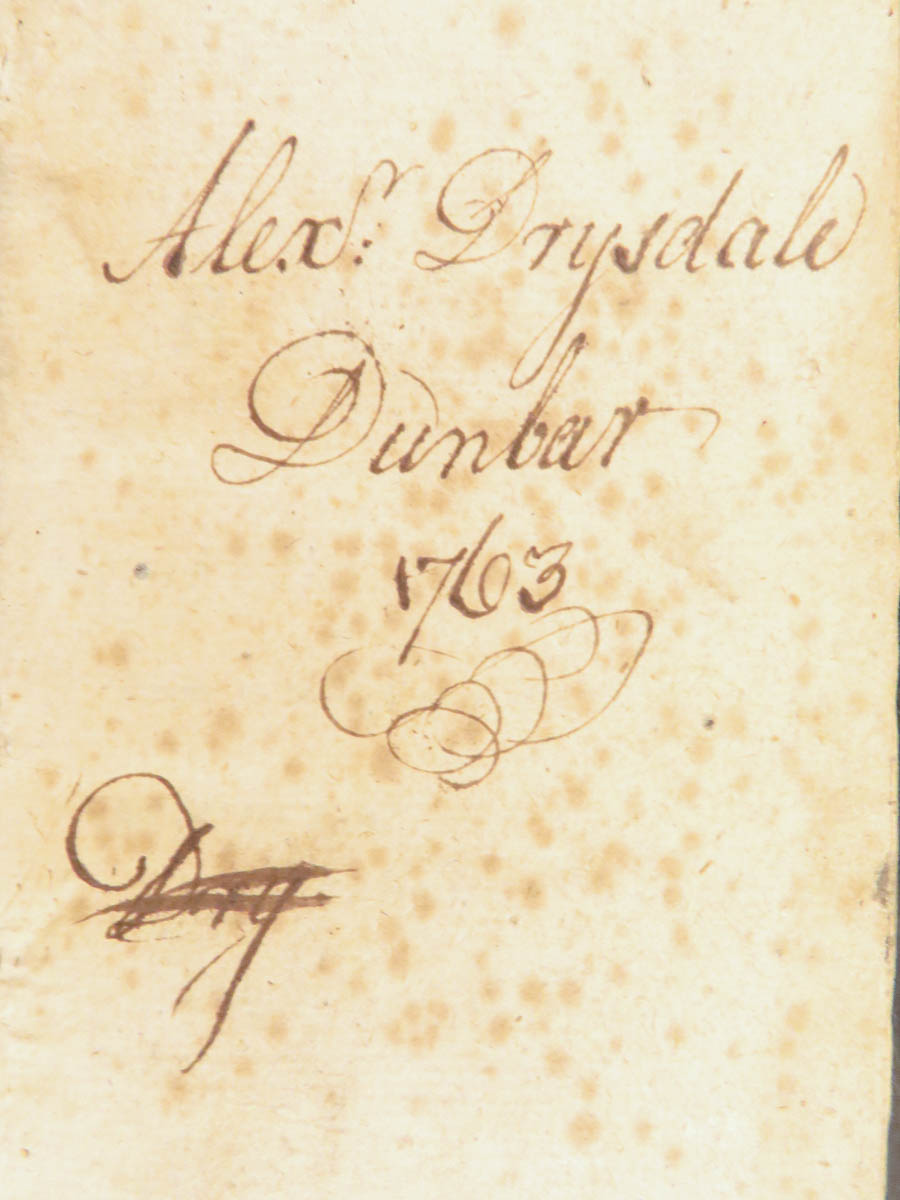 Alexr. Drysdale
Dunbar
1763
Dry